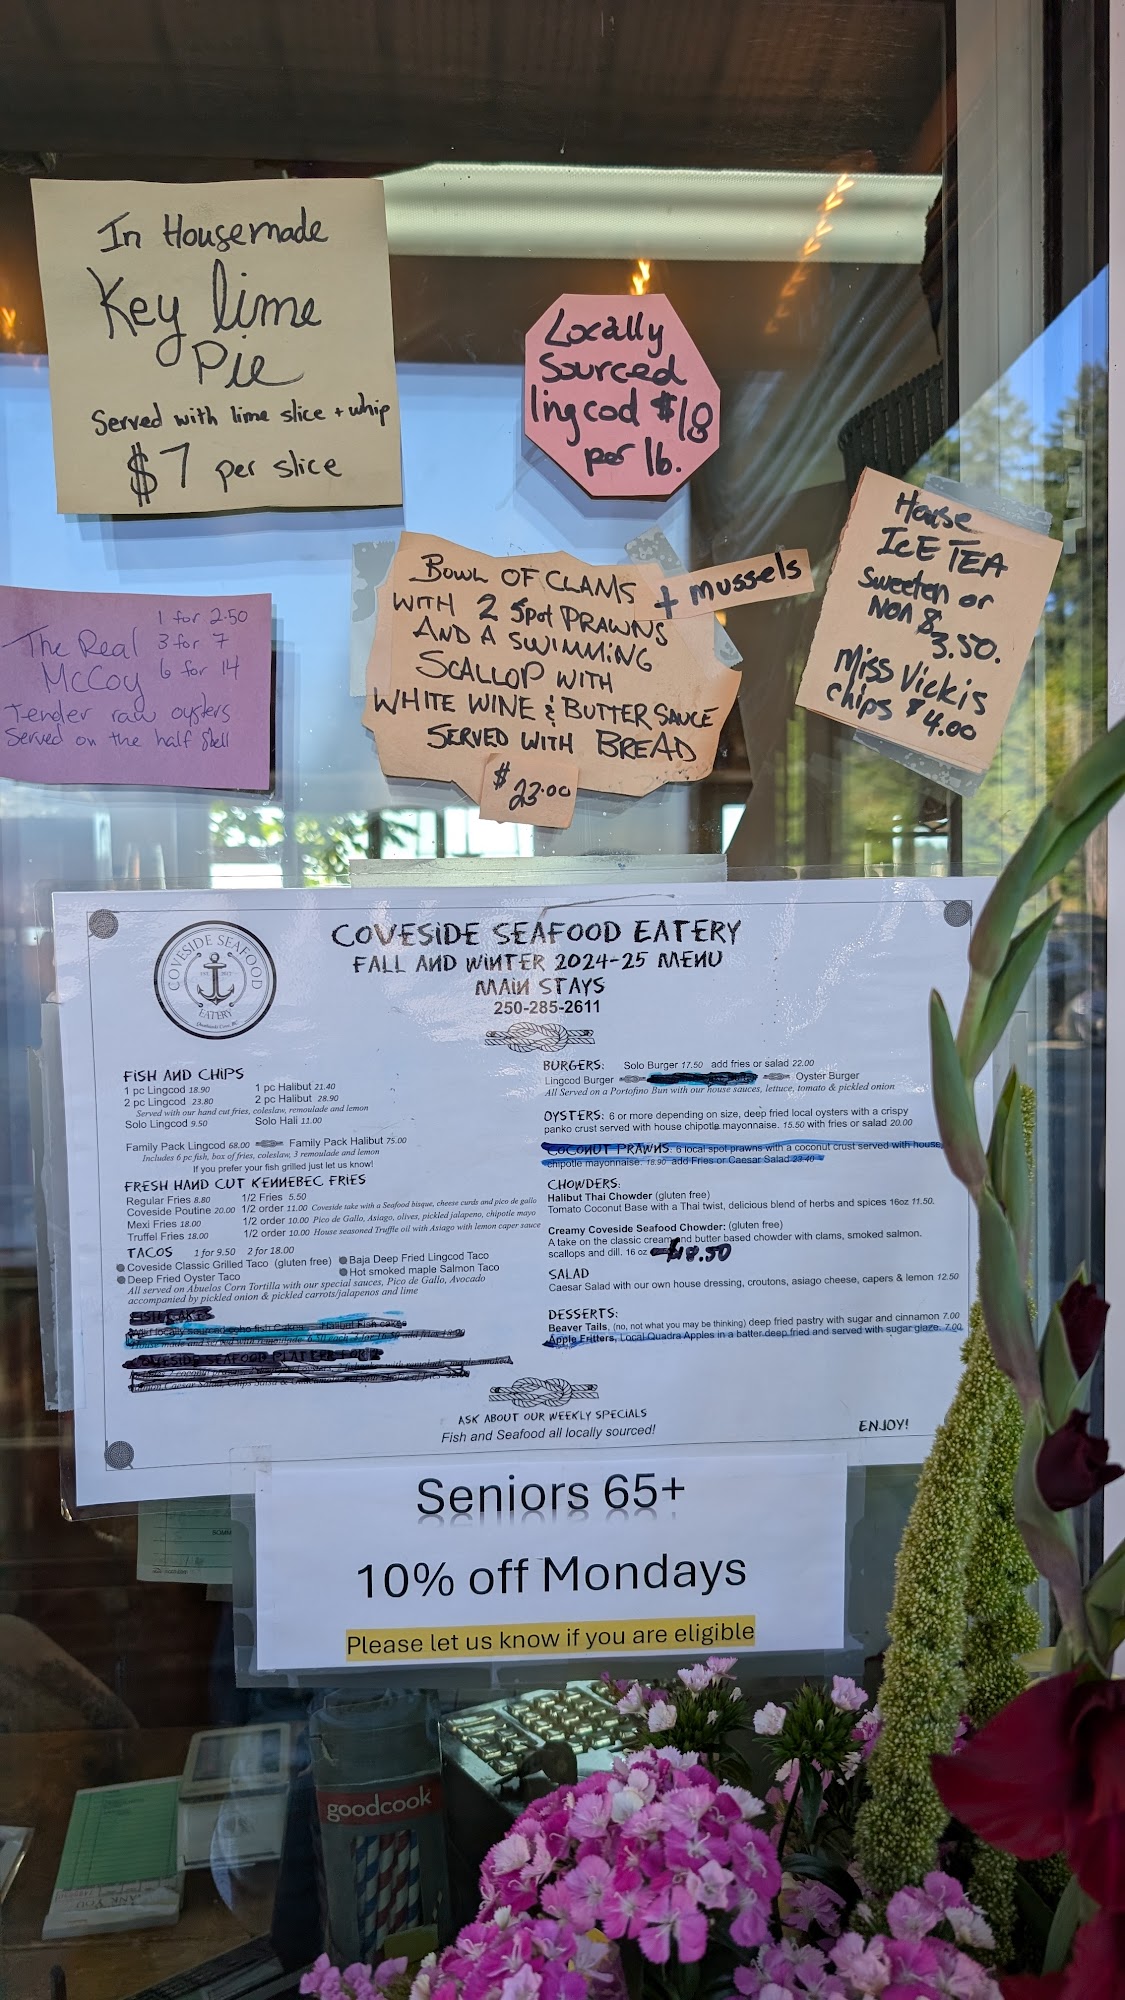 In Housemade
Key lime
Pie
Served with lime slice + whip
$7 per slice
Locally
Sourced
lingcod $18
per lb.
House
ICE TEA
Sweeten or
NON &
3.50.
Miss Vickis
chips $4.00
BOWL OF CLAMS + mussels
WITH 2 Spot PRAWNS
AND A SWIMMING
SCALLOP WITH
WHITE WINE & BUTTER SAUCE
SERVED WITH BREAD
$23.00
The Real
McCoy
1 for 2.50
3 for 7
6 for 14
Tender raw oysters
Served on the half shell
COVESIDE SEAFOOD
EATERY
COVESIDE SEAFOOD EATERY
FALL AND WINTER 2024-25 MENU
MAIN STAYS
250-285-2611
FISH AND CHIPS
1 pc Lingcod 18.90 1 pc Halibut 21.40
2 pc Lingcod 23.80 2 pc Halibut 28.90
Served with our hand cut fries, coleslaw, remoulade and lemon
Solo Lingcod 9.50 Solo Hali 11.00
Family Pack Lingcod 68.00 Family Pack Halibut 75.00
Includes 6 pc fish, box of fries, coleslaw, 3 remoulade and lemon
If you prefer your fish grilled just let us know!
FRESH HAND CUT KENNEBEC FRIES
Regular Fries 8.80 1/2 Fries 5.50
Coveside Poutine 20.00 1/2 order 11.00 Coveside take with a Seafood bisque, cheese curds and pico de gallo
Mexi Fries 18.00 1/2 order 10.00 Pico de Gallo, Asiago, olives, pickled jalapeno, chipotle mayo
Truffel Fries 18.00 1/2 order 10.00 House seasoned Truffle oil with Asiago with lemon caper sauce
TACOS 1 for 9.50 2 for 18.00
Coveside Classic Grilled Taco (gluten free) Baja Deep Fried Lingcod Taco
Deep Fried Oyster Taco Hot smoked maple Salmon Taco
All served on Abuelos Corn Tortilla with our special sauces, Pico de Gallo, Avocado
accompanied by pickled onion & pickled carrots/jalapenos and lime
COVESIDE SEAFOOD PLATTER FOR 2
BURGERS: Solo Burger 17.50 add fries or salad 22.00
Lingcod Burger Oyster Burger
All Served on a Portofino Bun with our house sauces, lettuce, tomato & pickled onion
OYSTERS: 6 or more depending on size, deep fried local oysters with a crispy
panko crust served with house chipotle mayonnaise. 15.50 with fries or salad 20.00
COCONUT PRAWNS: 6 local spot prawns with a coconut crust served with house,
chipotle mayonnaise. 18.90 add Fries or Caesar Salad 23.40
CHOWDERS:
Halibut Thai Chowder (gluten free)
Tomato Coconut Base with a Thai twist, delicious blend of herbs and spices 16oz 11.50.
Creamy Coveside Seafood Chowder: (gluten free)
A take on the classic cream and butter based chowder with clams, smoked salmon.
scallops and dill. 16 oz $18.50
SALAD
Caesar Salad with our own house dressing, croutons, asiago cheese, capers & lemon 12.50
DESSERTS:
Beaver Tails, (no, not what you may be thinking) deep fried pastry with sugar and cinnamon 7.00
Apple Fritters, Local Quadra Apples in a batter deep fried and served with sugar glaze. 7.00
ASK ABOUT OUR WEEKLY SPECIALS
Fish and Seafood all locally sourced!
ENJOY!
Seniors 65+
10% off Mondays
Please let us know if you are eligible
goodcook